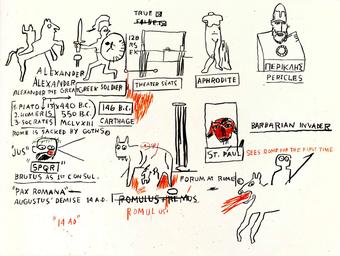 TRUE
FALSE
ALEXANDER
ALEXANDER
ALEXANDER THE GREAT
GREEK SOLDIER
THEATER SEATS
APHRODITE
ΠΕΡΙΚΛΗΣ
PERICLES
1. PLATO
440 B.C.
2. HOMERIS
550 B.C.
3. SOCRATES
MCLVXIII
146 B.C.
CARTHAGE
ROME IS SACKED BY GOTHS
"JUS"
SPQR
BRUTUS AS 1ST CONSUL.
"PAX ROMANA"
AUGUSTUS' DEMISE 14 A.D.
"14 AD"
ROMULUS REMUS
ROMULUS
FORUM AT ROME
ST. PAUL
BARBARIAN INVADER
SEES ROME FOR THE FIRST TIME